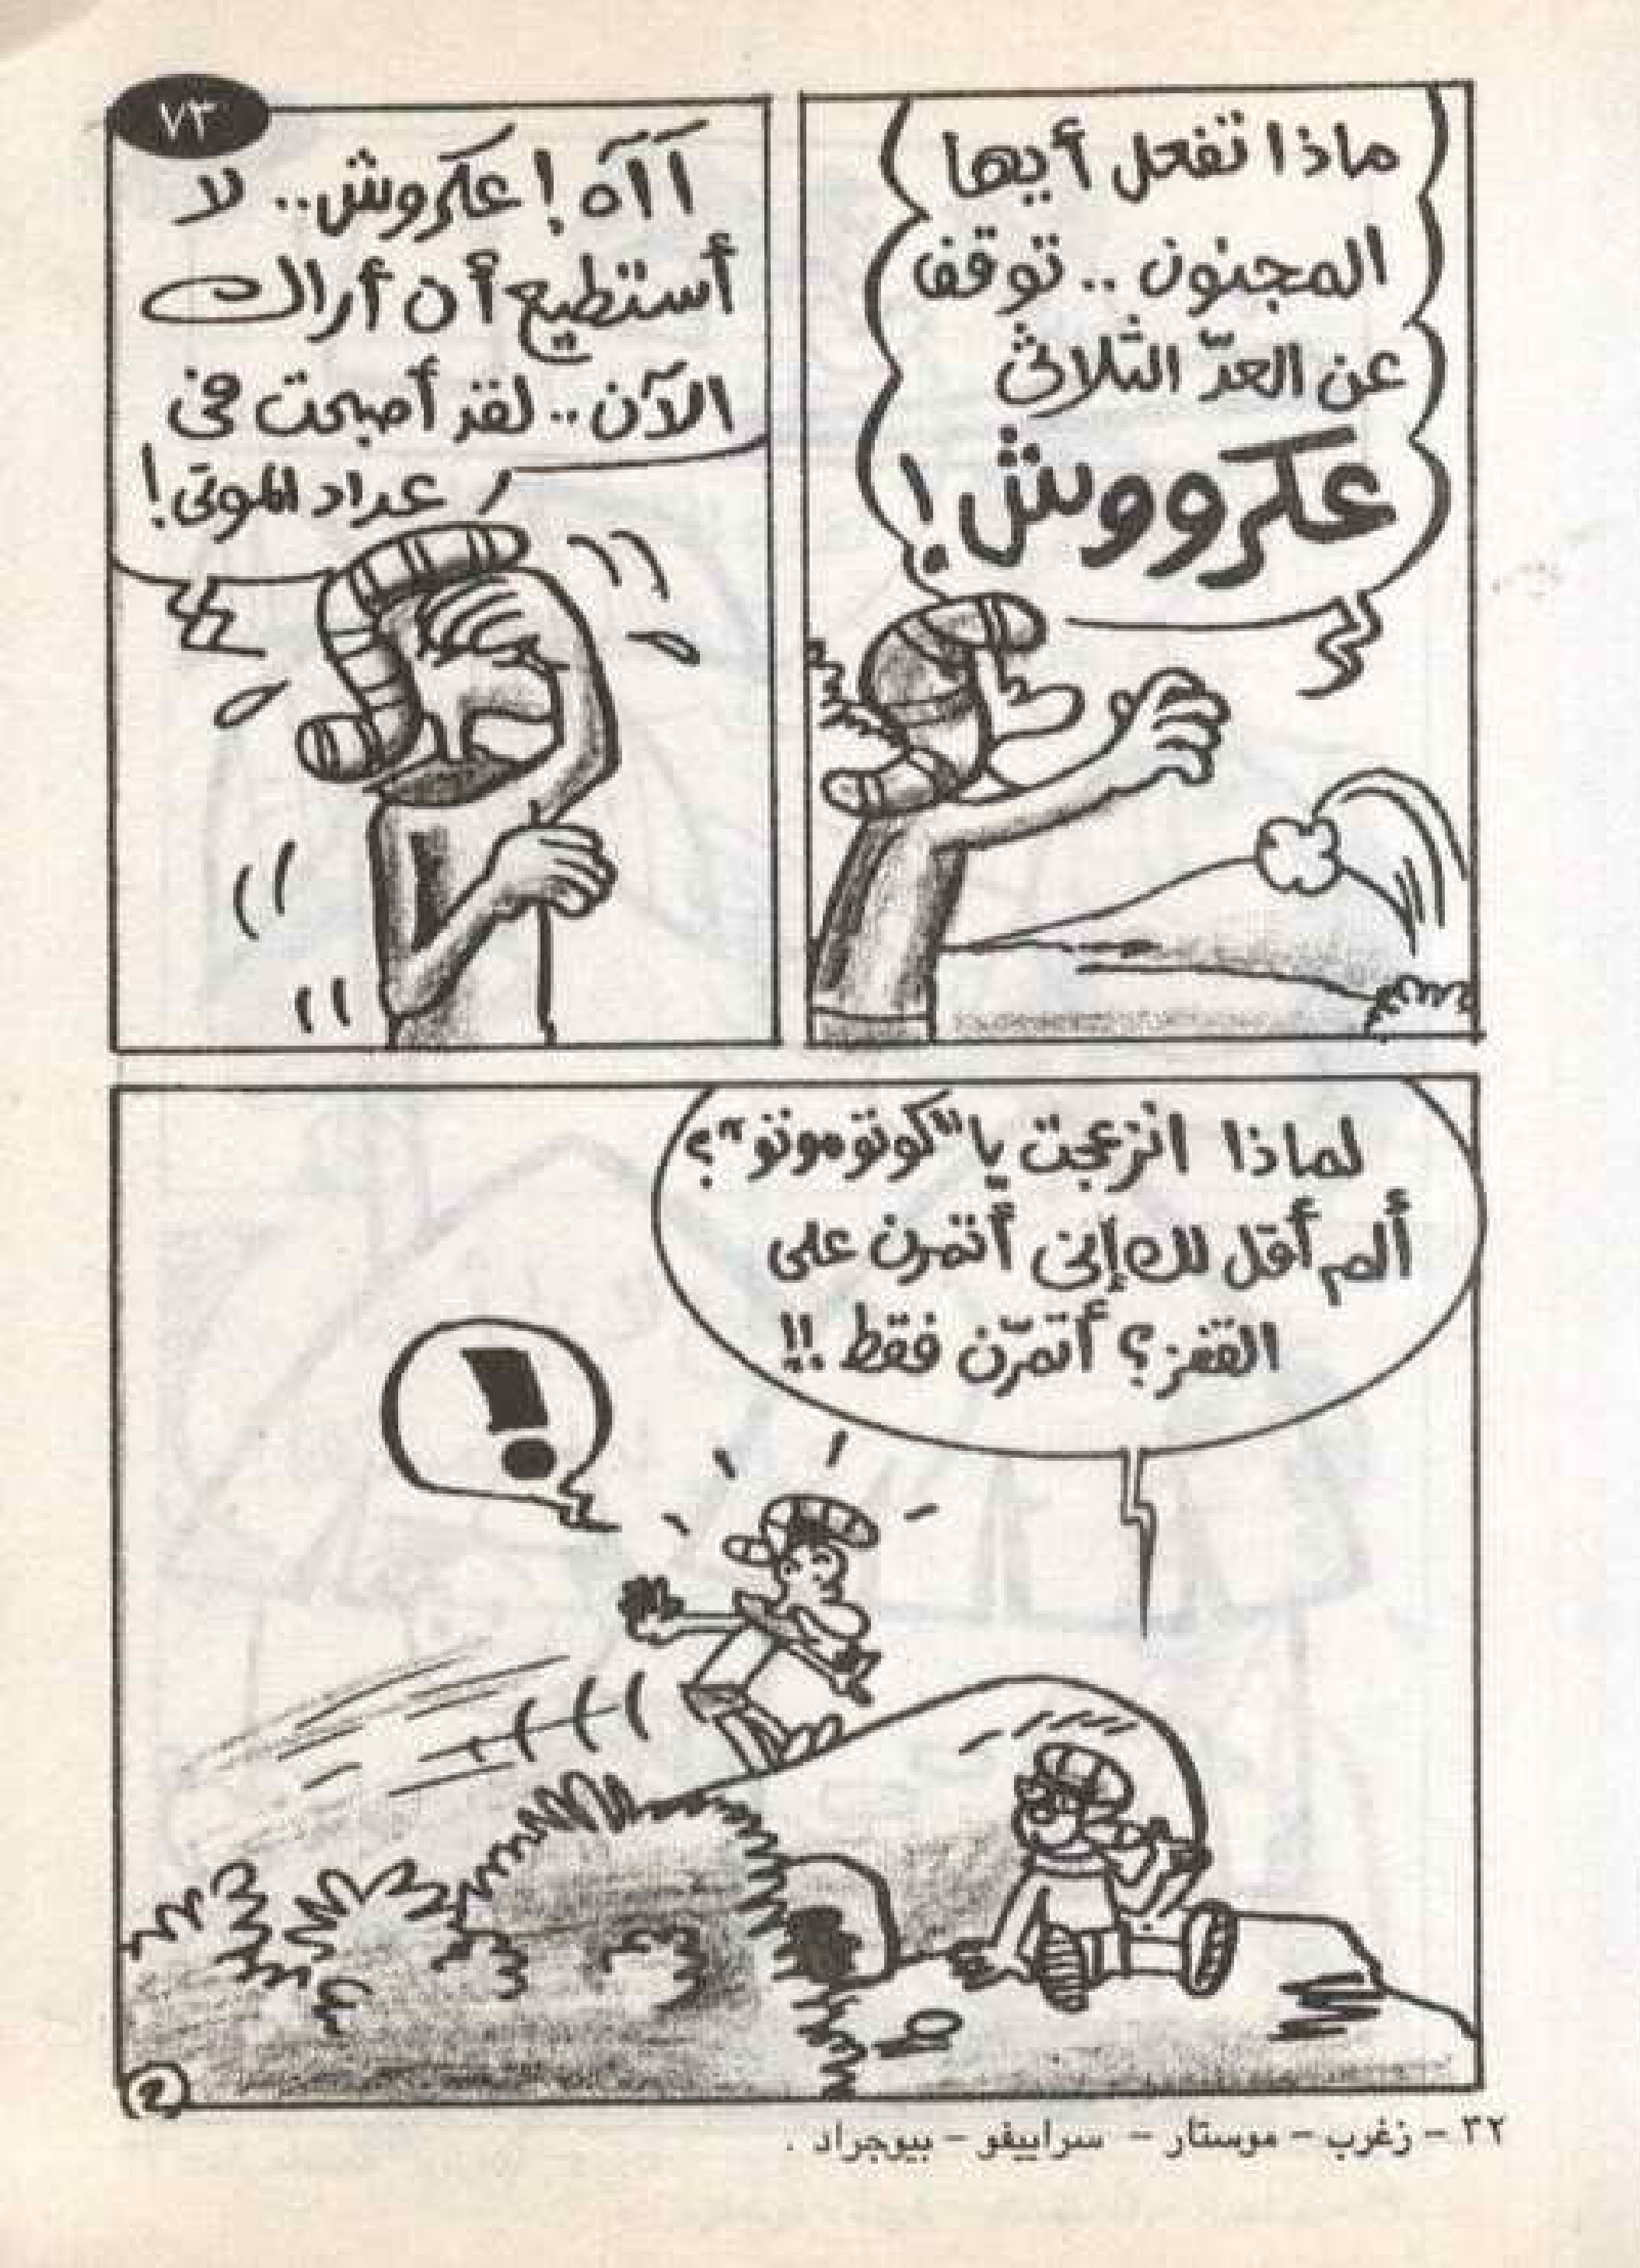 ماذا تفعل أيها
المجنون .. توقف
عن العدّ الثلاثي
عكرووش!
٧٣
آآآه! عكروش.. لا
أستطيع أن أراك
الآن.. لقد أصبحت في
عداد الموتى!
لماذا انزعجت يا "كوتوموتو"؟
ألم أقل لك إني أتمرن على
القفز؟ أتمرّن فقط!!
!
٣٢ - زغرب - موستار - سراييفو - بيوجراد .